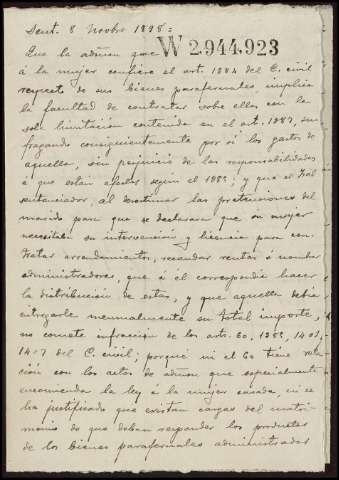 Sent. 8 Novbr 1898 =
W 2.944.923
Que la admon que
á la mujer confiere el art. 1384 del C. civil
respecto de sus bienes parafernales, implica
la facultad de contratar sobre ellos con la
sola limitación contenida en el art. 1387, su
fragando consiguientemente por sí los gastos de
aquella, sin perjuicio de las responsabilidades
á que están afectos según el 1385; y que el Tribl
sentenciador, al desestimar las pretensiones del
marido para que se declarara que su mujer
necesitaba su intervención y licencia para con
tratar arrendamientos, recaudar rentas ó nombrar
administradores, que á él correspondía hacer
la distribución de éstas, y que aquella debía
entregarle mensualmente su total importe,
no comete infracción de los arts. 60, 1385, 1401,
1407 del C. civil; porque ni el 60 tiene rela
ción con los actos de admon que especialmente
encomienda la ley á la mujer casada, ni se
ha justificado que existan cargas del matri
monio de que deban responder los productos
de los bienes parafernales administrados